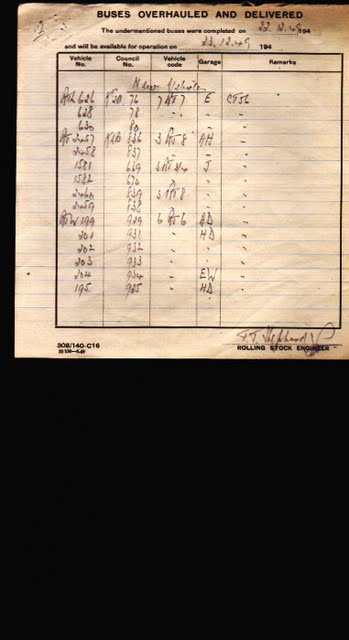 BUSES OVERHAULED AND DELIVERED
The undermentioned buses were completed on 22.12.49 194
and will be available for operation on 23.12.49 194
Vehicle No. Council No. Vehicle code Garage Remarks
New Vehicles
626 76 7 7 E
628 78 " "
630 80 " "
2457 836 3 8 AH "
2458 837 " " "
1581 669 3 J "
1582 670 " " "
2460 839 3 8 " "
2459 838 " " "
RTW 199 929 6 6 HD "
201 931 " HD "
202 932 " " "
203 933 " " "
204 934 " EW "
195 925 " HD "
308/140-C16
ROLLING STOCK ENGINEER